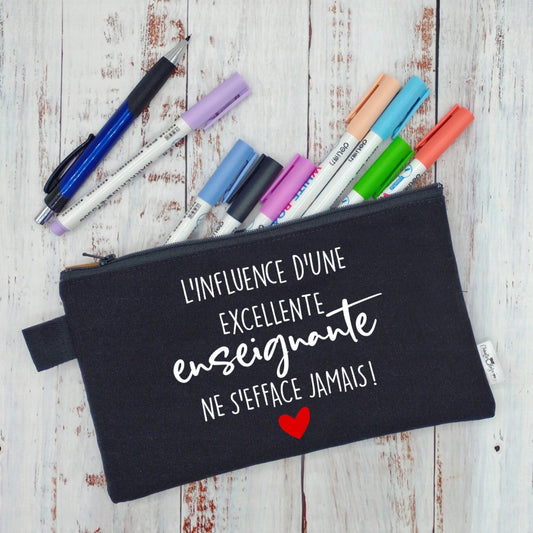 L'INFLUENCE D'UNE
EXCELLENTE
enseignante
NE S'EFFACE JAMAIS !